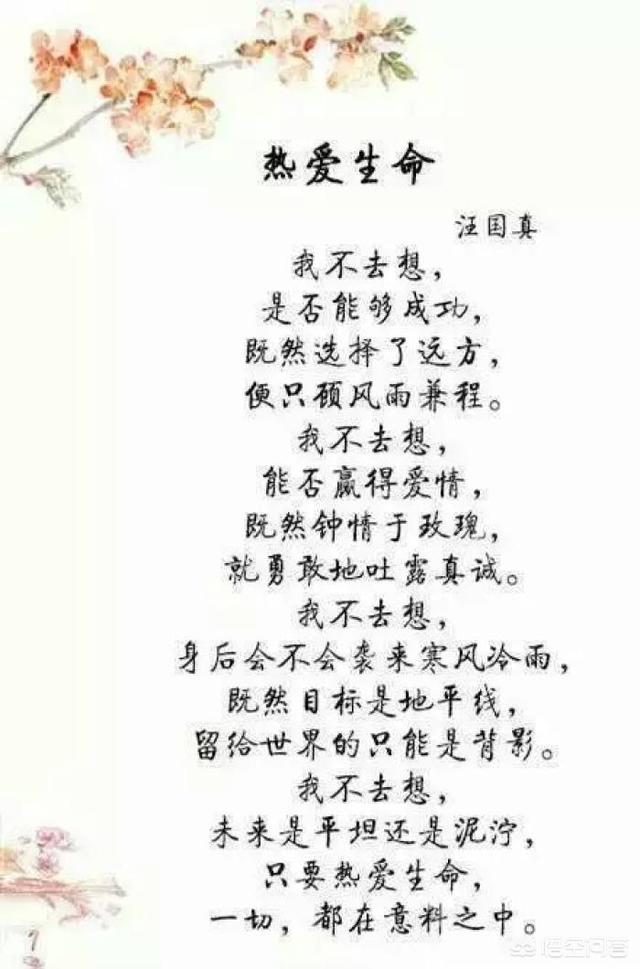 热爱生命
汪国真
我不去想，
是否能够成功，
既然选择了远方，
便只顾风雨兼程。
我不去想，
能否赢得爱情，
既然钟情于玫瑰，
就勇敢地吐露真诚。
我不去想，
身后会不会袭来寒风冷雨，
既然目标是地平线，
留给世界的只能是背影。
我不去想，
未来是平坦还是泥泞，
只要热爱生命，
一切，都在意料之中。
悟空问答